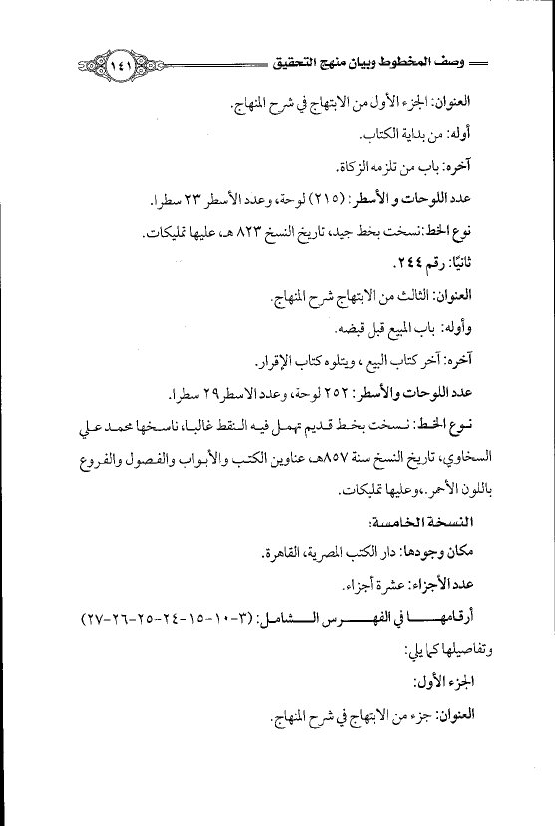 وصف المخطوط وبيان منهج التحقيق ١٤١
العنوان: الجزء الأول من الابتهاج في شرح المنهاج.
أوله: من بداية الكتاب.
آخره: باب من تلزمه الزكاة.
عدد اللوحات و الأسطر: (٢١٥) لوحة، وعدد الأسطر ٢٣ سطرا.
نوع الخط:نسخت بخط جيد، تاريخ النسخ ٨٢٣ هـ، عليها تمليكات.
ثانيًا: رقم ٢٤٤.
العنوان: الثالث من الابتهاج شرح المنهاج.
وأوله: باب المبيع قبل قبضه.
آخره: آخر كتاب البيع ، ويتلوه كتاب الإقرار.
عدد اللوحات والأسطر: ٢٥٢ لوحة، وعدد الاسطر٢٩ سطرا.
نوع الخط: نسخت بخط قديم تهمل فيه النقط غالبا، ناسخها محمد علي
السخاوي، تاريخ النسخ سنة ٨٥٧هـ، عناوين الكتب والأبواب والفصول والفروع
باللون الأحمر.،وعليها تمليكات.
النسخة الخامسة:
مكان وجودها: دار الكتب المصرية، القاهرة.
عدد الأجزاء: عشرة أجزاء.
أرقامها في الفهرس الشامل: (٣-١٠-١٥-٢٤-٢٥-٢٦-٢٧)
وتفاصيلها كما يلي:
الجزء الأول:
العنوان: جزء من الابتهاج في شرح المنهاج.